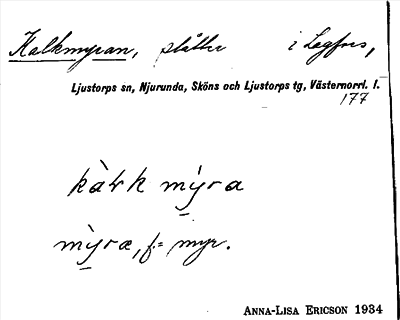 Kalkmyran, slåtter i Lagfors,
Ljustorps sn, Njurunda, Sköns och Ljustorps tg, Västernorrl. l.
177
kàlk mýra
mỳra, f = myr.
ANNA-LISA ERICSON 1934